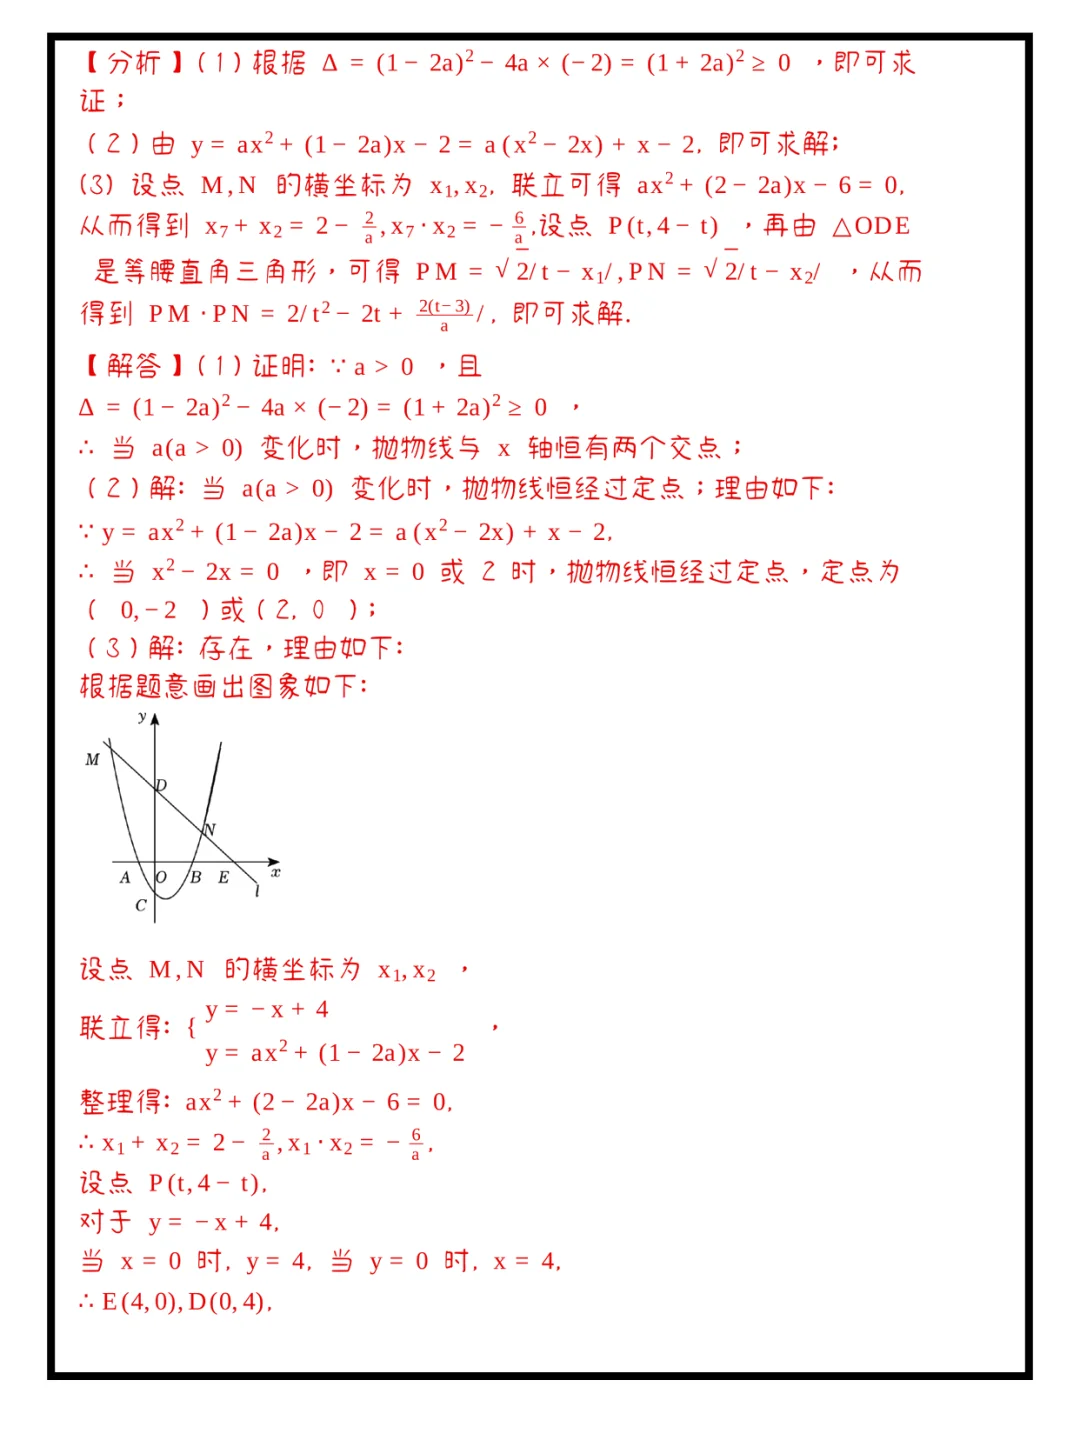 【分析】(1)根据 Δ = (1 − 2a)² − 4a × (− 2) = (1 + 2a)² ≥ 0 ，即可求
证；
(2)由 y = ax² + (1 − 2a)x − 2 = a (x² − 2x) + x − 2, 即可求解;
(3) 设点 M, N 的横坐标为 x₁, x₂, 联立可得 ax² + (2 − 2a)x − 6 = 0,
从而得到 x₇ + x₂ = 2 − 2/a , x₇ · x₂ = − 6/a ,设点 P (t, 4 − t) ，再由 △ODE
是等腰直角三角形，可得 P M = √2/ t − x₁/ , P N = √2/ t − x₂/ ，从而
得到 P M · P N = 2/ t² − 2t + 2(t−3)/a /, 即可求解.
【解答】(1)证明: ∵ a > 0 ，且
Δ = (1 − 2a)² − 4a × (− 2) = (1 + 2a)² ≥ 0 ，
∴ 当 a(a > 0) 变化时，抛物线与 x 轴恒有两个交点；
(2)解: 当 a(a > 0) 变化时，抛物线恒经过定点；理由如下:
∵ y = ax² + (1 − 2a)x − 2 = a (x² − 2x) + x − 2,
∴ 当 x² − 2x = 0 ，即 x = 0 或 2 时，抛物线恒经过定点，定点为
( 0, − 2 )或(2, 0 );
(3)解: 存在，理由如下:
根据题意画出图象如下:
y
M
D
N
A O B E x
l
C
设点 M, N 的横坐标为 x₁, x₂ ，
联立得: { y = − x + 4
y = ax² + (1 − 2a)x − 2 ，
整理得: ax² + (2 − 2a)x − 6 = 0,
∴ x₁ + x₂ = 2 − 2/a , x₁ · x₂ = − 6/a ,
设点 P (t, 4 − t),
对于 y = − x + 4,
当 x = 0 时, y = 4, 当 y = 0 时, x = 4,
∴ E (4, 0), D (0, 4),